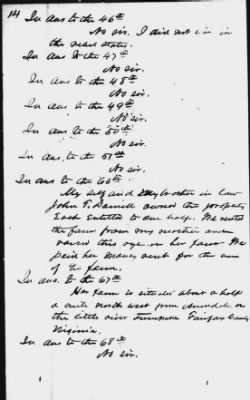 14 In ans to the 46th
No sir. I did not live in
the rebel states.
In ans to the 47th
No sir.
In ans to the 48th
No sir.
In ans to the 49th
No sir.
In ans to the 50th
No sir.
In ans. to the 51st
No sir.
In ans to the 66th
My self and my brother in law
John T. Daniell owned the property
Each Entitled to one half. We rented
the farm from my mother and
raised this rye on her farm We
paid her money rent for the use
of the farm.
In ans. to the 67th
Her farm is situated about a half
a mile North west from Annandale on
the little river Turnpike Fairfax County
Virginia.
In ans to the 68th
No sir.